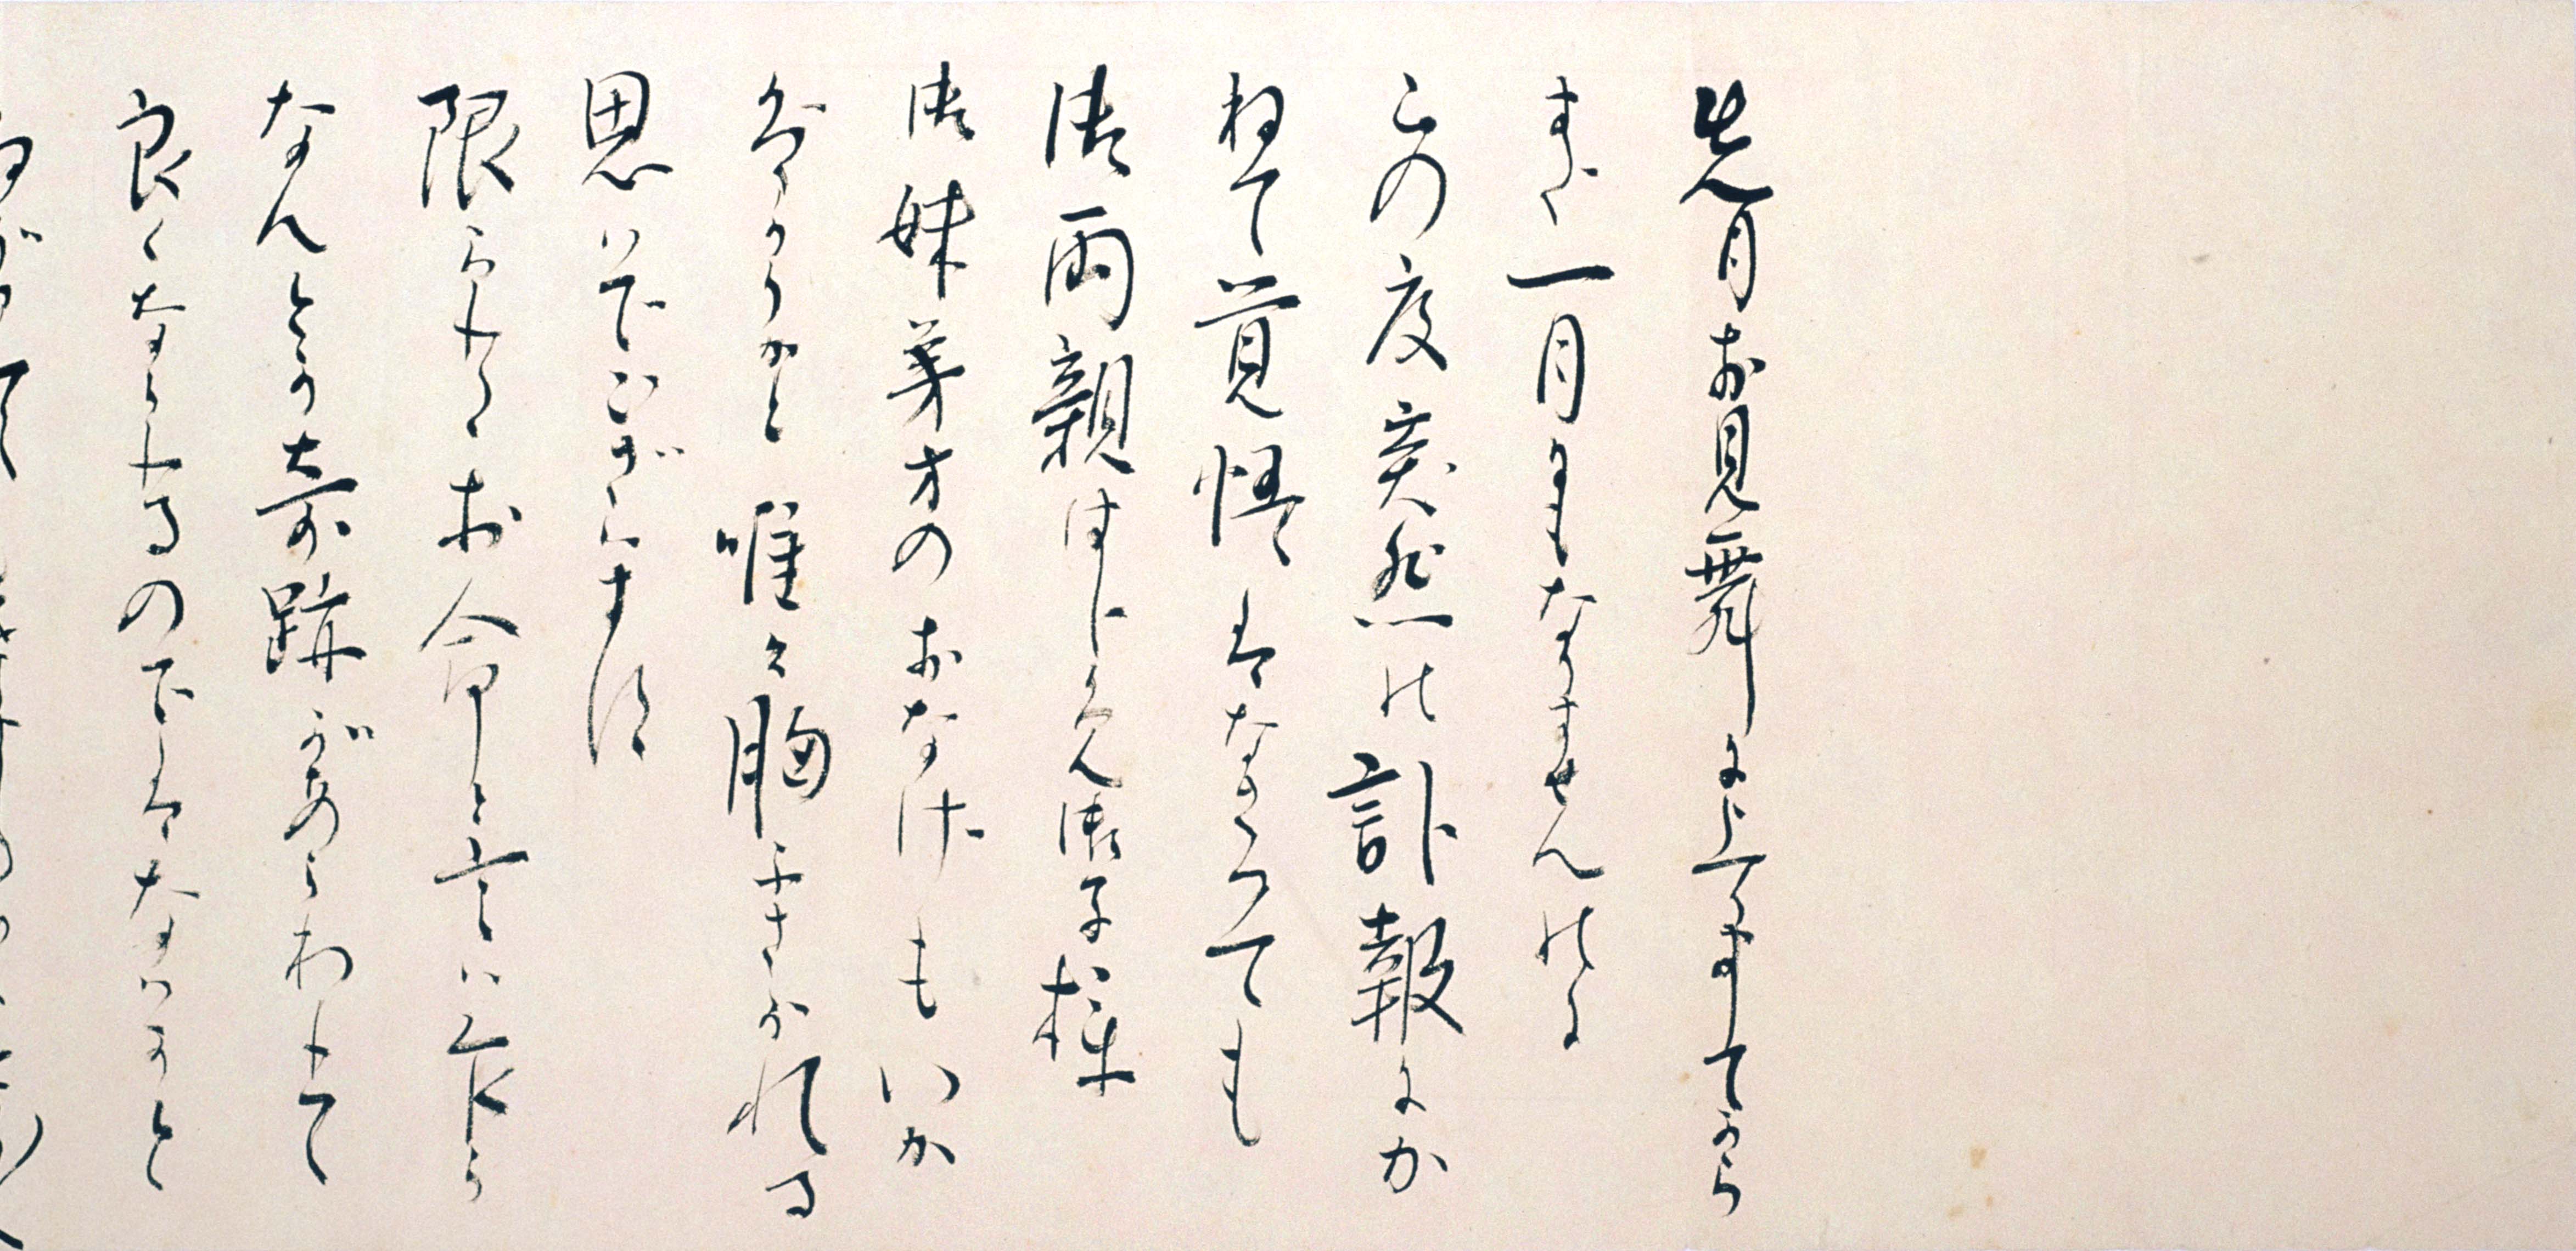 先月お見舞に上りましてから
まだ一月にもなりませんのに
この度突然の訃報にか
ねて覚悟はなさつても
御両親はじめ御子様
御妹弟方のおなげきいか
ばかりかと唯々胸ふさがれる
思いでございます
限られたお命と言い乍ら
なんとか奇跡があらわれて
良くなられるのではないかと